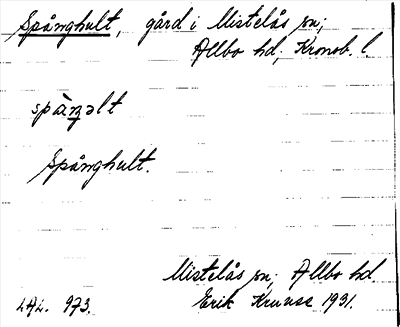 Spånghult, gård i Mistelås sn;
Allbo hd; Kronob. l.
spàŋəlt
Spånghult.
Mistelås sn; Allbo hd.
LAL. 973. Erik Kruuse 1931.